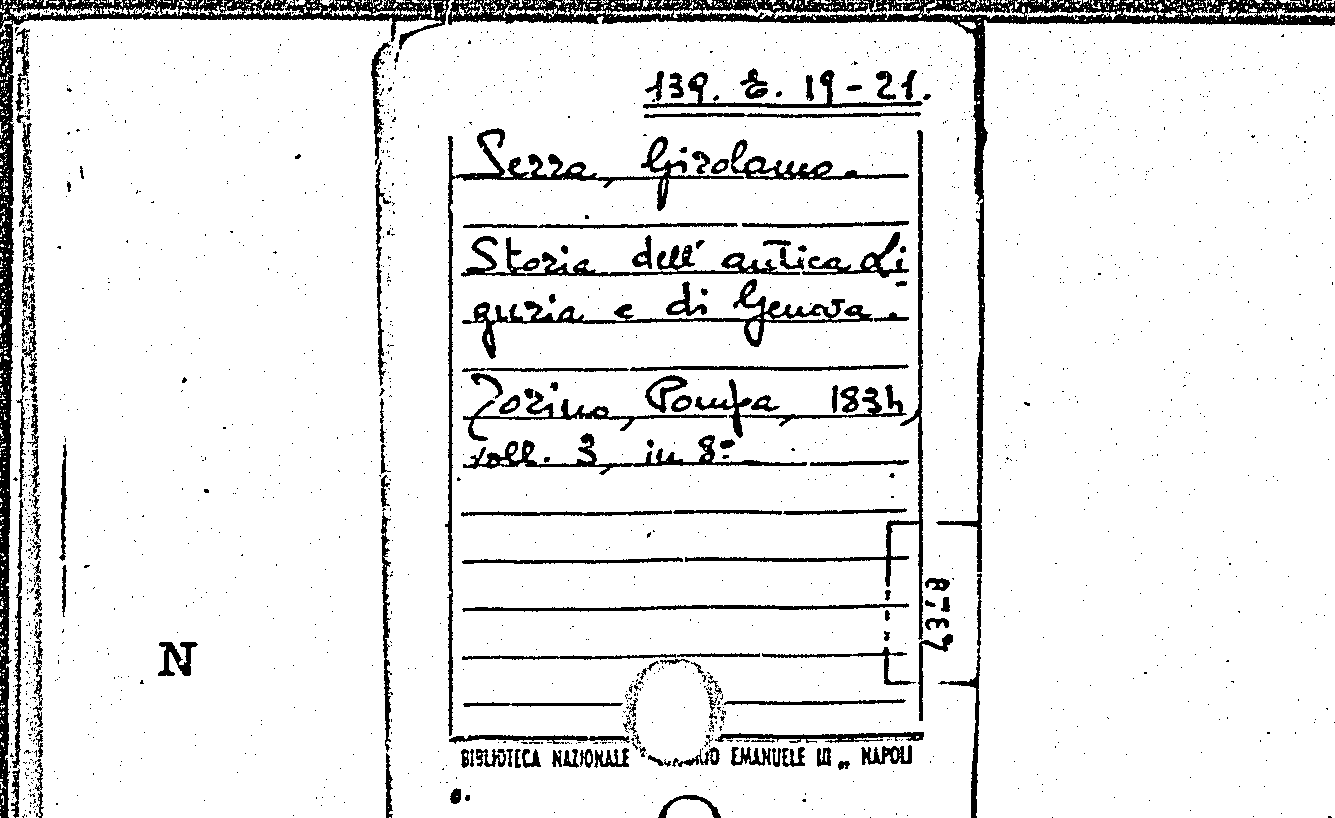 139. E. 19-21.
Serra, Girolamo.
Storia dell'antica Li-
guria e di Genova.
Torino, Pompa, 1834,
voll. 3, in 8º
N
BIBLIOTECA NAZIONALE EMANUELE III „ NAPOLI